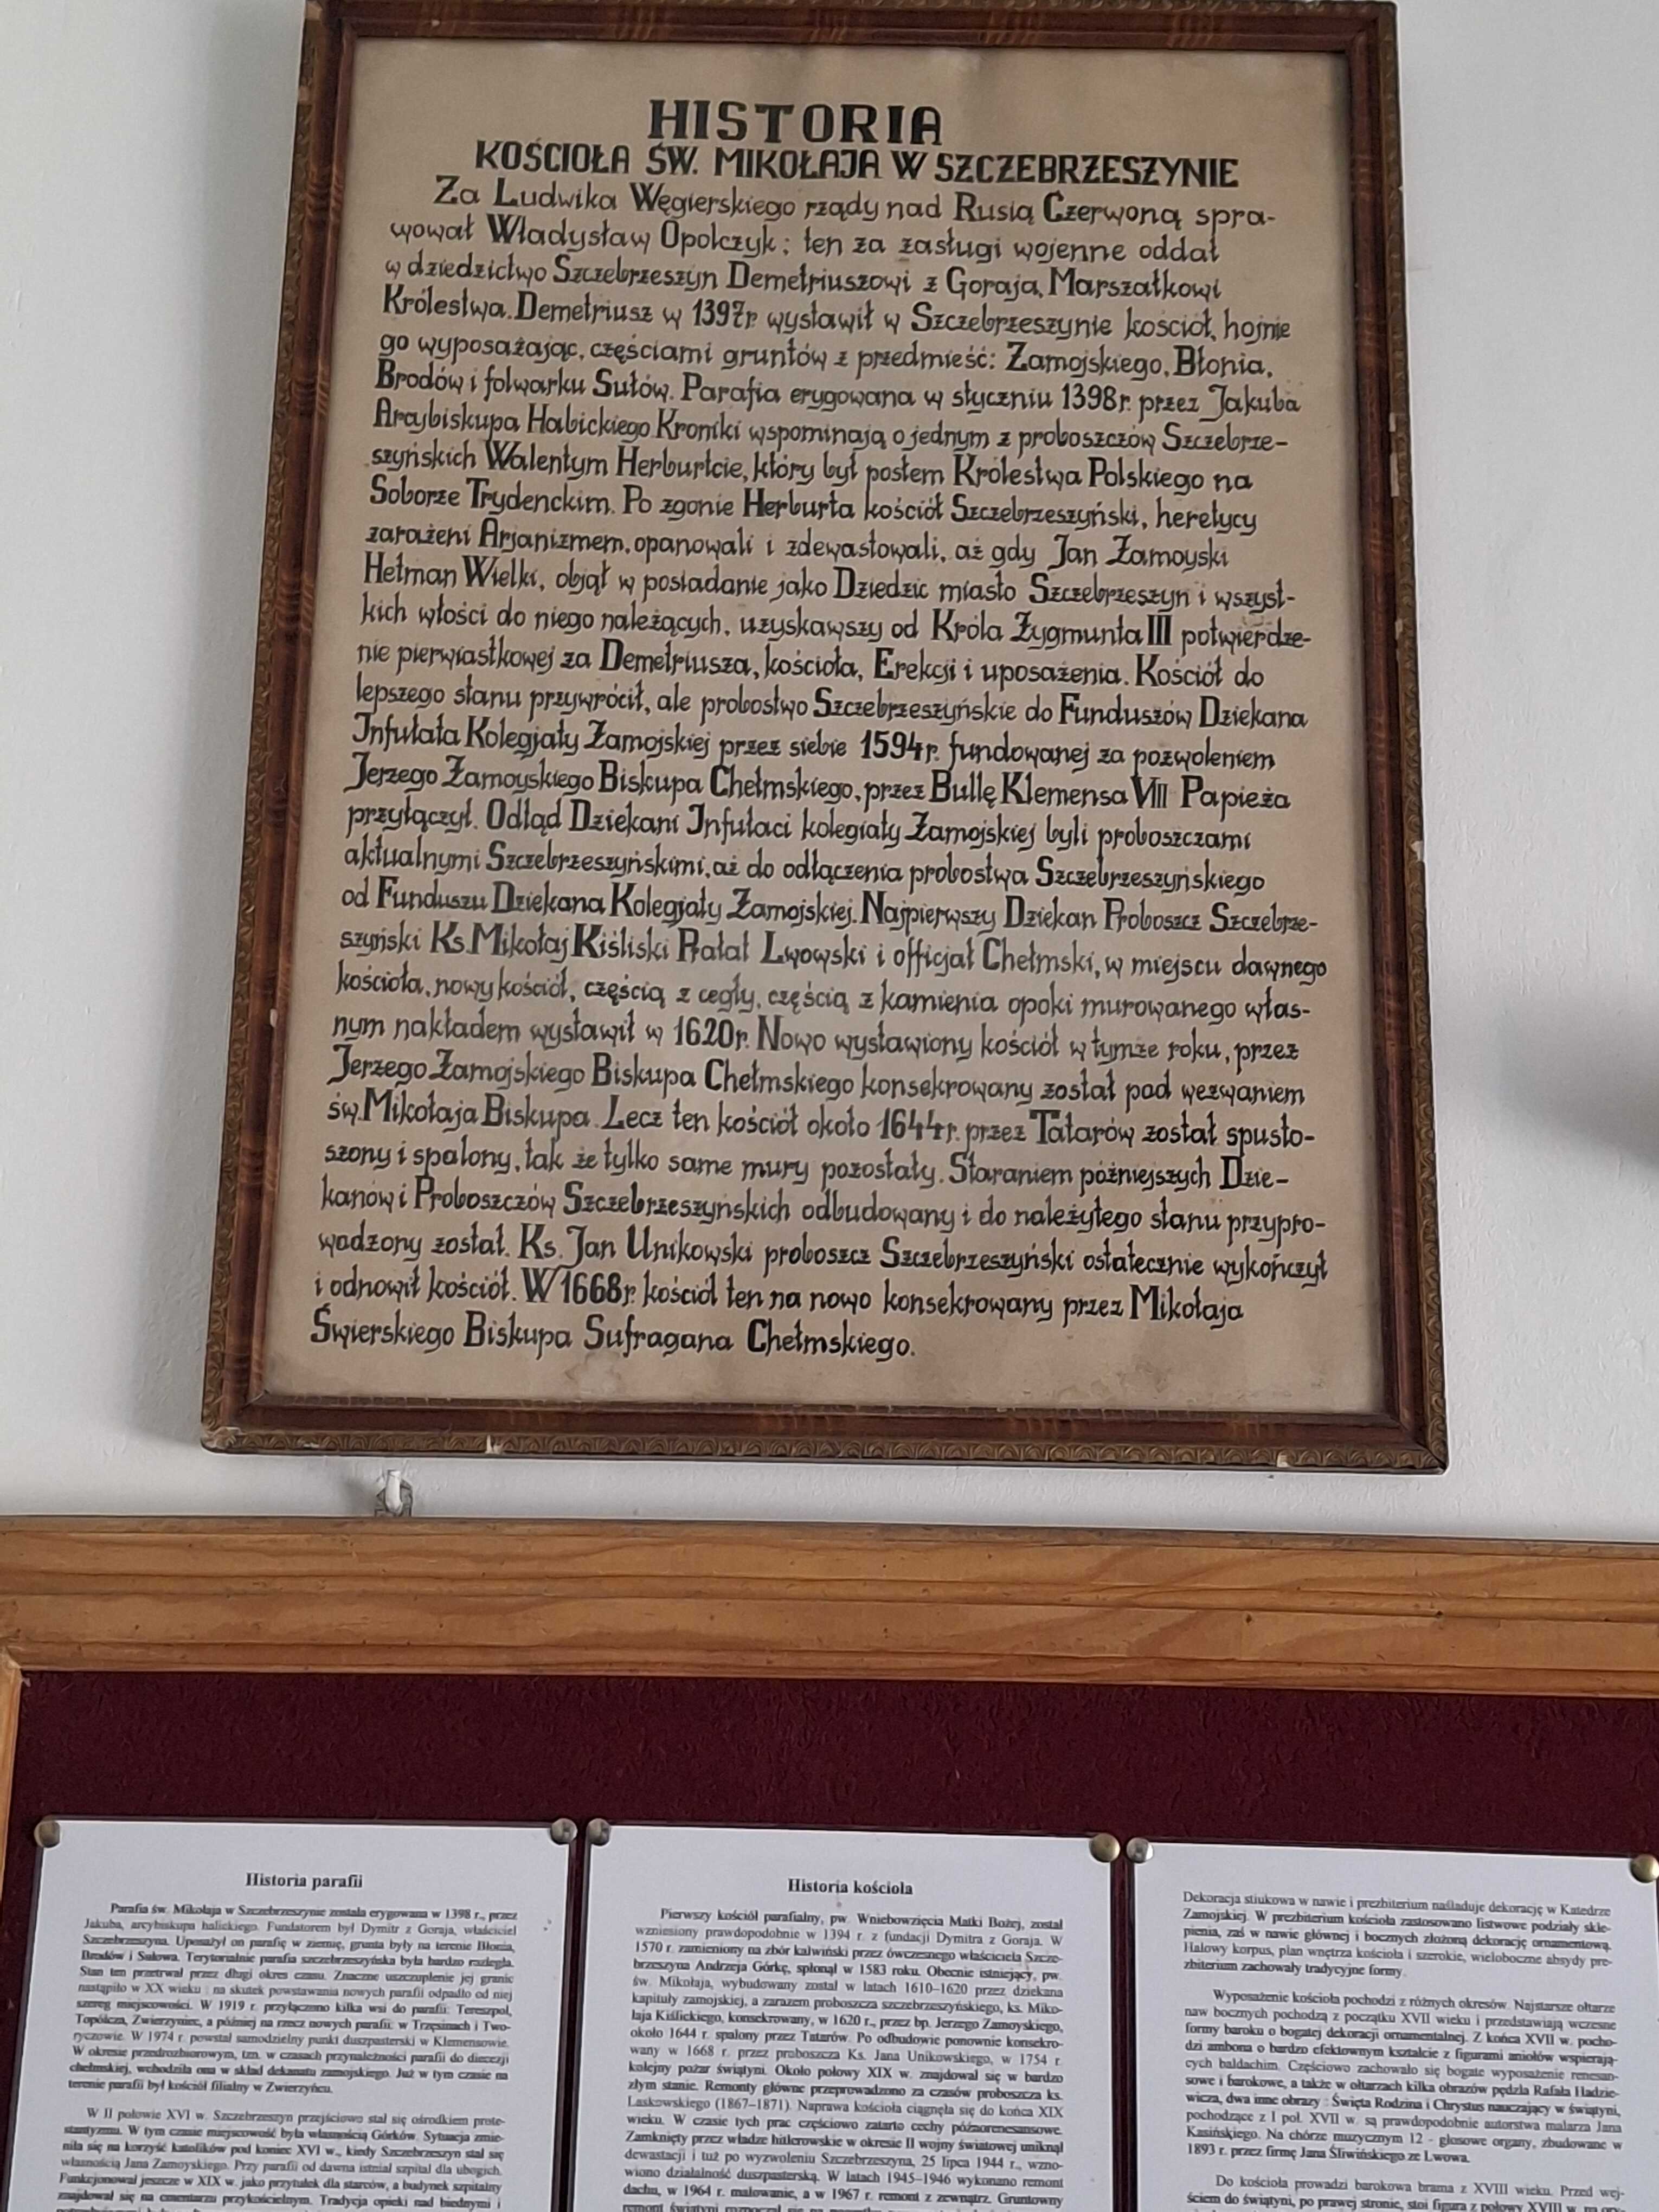 HISTORIA
KOŚCIOŁA ŚW. MIKOŁAJA W SZCZEBRZESZYNIE
Za Ludwika Węgierskiego rządy nad Rusią Czerwoną spra-
wował Władysław Opolczyk; ten za zasługi wojenne oddał
w dziedzictwo Szczebrzeszyn Demetriuszowi z Goraja, Marszałkowi
Królestwa. Demetriusz w 1397r. wystawił w Szczebrzeszynie kościół, hojnie
go wyposażając, częściami gruntów z przedmieść: Zamojskiego, Błonia,
Brodów i folwarku Sułów. Parafia erygowana w styczniu 1398r. przez Jakuba
Arcybiskupa Habickiego Kroniki wspominają o jednym z proboszczów Szczebrze-
szyńskich Walentym Herburtcie, który był posłem Królestwa Polskiego na
Soborze Trydenckim. Po zgonie Herburta kościół Szczebrzeszyński, heretycy
zarażeni Arjanizmem, opanowali i zdewastowali, aż gdy Jan Zamoyski
Hetman Wielki, objął w posiadanie jako Dziedzic miasto Szczebrzeszyn i wszyst-
kich włości do niego należących, uzyskawszy od Króla Zygmunta III potwierdze-
nie pierwiastkowej za Demetriusza, kościoła, Erekcji i uposażenia. Kościół do
lepszego stanu przywrócił, ale probostwo Szczebrzeszyńskie do Funduszów Dziekana
Infułata Kolegjaty Zamojskiej przez siebie 1594r. fundowanej za pozwoleniem
Jerzego Zamoyskiego Biskupa Chełmskiego, przez Bullę Klemensa VIII Papieża
przyłączył. Odtąd Dziekani Infułaci kolegiaty Zamojskiej byli proboszczami
aktualnymi Szczebrzeszyńskimi, aż do odłączenia probostwa Szczebrzeszyńskiego
od Funduszu Dziekana Kolegjaty Zamojskiej. Najpierwszy Dziekan Proboszcz Szczebrze-
szyński Ks. Mikołaj Kiśliski Prałat Lwowski i officjał Chełmski, w miejscu dawnego
kościoła, nowy kościół, częścią z cegły, częścią z kamienia opoki murowanego włas-
nym nakładem wystawił w 1620r. Nowo wystawiony kościół w tymże roku, przez
Jerzego Zamojskiego Biskupa Chełmskiego konsekrowany został pod wezwaniem
św. Mikołaja Biskupa. Lecz ten kościół około 1644r. przez Tatarów został spusto-
szony i spalony, tak że tylko same mury pozostały. Staraniem późniejszych Dzie-
kanów i Proboszczów Szczebrzeszyńskich odbudowany i do należytego stanu przypro-
wadzony został. Ks. Jan Unikowski proboszcz Szczebrzeszyński ostatecznie wykończył
i odnowił kościół. W 1668r. kościół ten na nowo konsekrowany przez Mikołaja
Świerskiego Biskupa Sufragana Chełmskiego.
Historia parafii
Parafia św. Mikołaja w Szczebrzeszynie została erygowana w 1398 r., przez
Jakuba, arcybiskupa halickiego. Fundatorem był Dymitr z Goraja, właściciel
Szczebrzeszyna. Uposażył on parafię w ziemię, grunta były na terenie Błonia,
Brodów i Sułowa. Terytorialnie parafia szczebrzeszyńska była bardzo rozległa.
Stan ten przetrwał przez długi okres czasu. Znaczne uszczuplenie jej granic
nastąpiło w XX wieku : na skutek powstawania nowych parafii odpadło od niej
szereg miejscowości. W 1919 r. przyłączono kilka wsi do parafii: Tereszpol,
Topólcza, Zwierzyniec, a później na rzecz nowych parafii: w Trzęsinach i Two-
ryczowie. W 1974 r. powstał samodzielny punkt duszpasterski w Klemensowie.
W okresie przedrozbiorowym, tzn. w czasach przynależności parafii do diecezji
chełmskiej, wchodziła ona w skład dekanatu zamojskiego. Już w tym czasie na
terenie parafii był kościół filialny w Zwierzyńcu.
W II połowie XVI w. Szczebrzeszyn przejściowo stał się ośrodkiem prote-
stantyzmu. W tym czasie miejscowość była własnością Górków. Sytuacja zmie-
niła się na korzyść katolików pod koniec XVI w., kiedy Szczebrzeszyn stał się
własnością Jana Zamoyskiego. Przy parafii od dawna istniał szpital dla ubogich.
Funkcjonował jeszcze w XIX w. jako przytułek dla starców, a budynek szpitalny
znajdował się na cmentarzu przykościelnym. Tradycja opieki nad biednymi i
Historia kościoła
Pierwszy kościół parafialny, pw. Wniebowzięcia Matki Bożej, został
wzniesiony prawdopodobnie w 1394 r. z fundacji Dymitra z Goraja. W
1570 r. zamieniony na zbór kalwiński przez ówczesnego właściciela Szcze-
brzeszyna Andrzeja Górkę, spłonął w 1583 roku. Obecnie istniejący, pw.
św. Mikołaja, wybudowany został w latach 1610–1620 przez dziekana
kapituły zamojskiej, a zarazem proboszcza szczebrzeszyńskiego, ks. Miko-
łaja Kiślickiego, konsekrowany, w 1620 r., przez bp. Jerzego Zamoyskiego,
około 1644 r. spalony przez Tatarów. Po odbudowie ponownie konsekro-
wany w 1668 r. przez proboszcza Ks. Jana Unikowskiego, w 1754 r.
kolejny pożar świątyni. Około połowy XIX w. znajdował się w bardzo
złym stanie. Remonty główne przeprowadzono za czasów proboszcza ks.
Laskowskiego (1867–1871). Naprawa kościoła ciągnęła się do końca XIX
wieku. W czasie tych prac częściowo zatarto cechy późnorenesansowe.
Zamknięty przez władze hitlerowskie w okresie II wojny światowej uniknął
dewastacji i tuż po wyzwoleniu Szczebrzeszyna, 25 lipca 1944 r., wzno-
wiono działalność duszpasterską. W latach 1945–1946 wykonano remont
dachu, w 1964 r. malowanie, a w 1967 r. remont z zewnątrz. Gruntowny
remont świątyni rozpoczął się
Dekoracja stiukowa w nawie i prezbiterium naśladuje dekorację w Katedrze
Zamojskiej. W prezbiterium kościoła zastosowano listwowe podziały skle-
pienia, zaś w nawie głównej i bocznych złożoną dekorację ornamentową.
Halowy korpus, plan wnętrza kościoła i szerokie, wieloboczne absydy pre-
zbiterium zachowały tradycyjne formy.
Wyposażenie kościoła pochodzi z różnych okresów. Najstarsze ołtarze
naw bocznych pochodzą z początku XVII wieku i przedstawiają wczesne
formy baroku o bogatej dekoracji ornamentalnej. Z końca XVII w. pocho-
dzi ambona o bardzo efektownym kształcie z figurami aniołów wspierają-
cych baldachim. Częściowo zachowało się bogate wyposażenie renesan-
sowe i barokowe, a także w ołtarzach kilka obrazów pędzla Rafała Hadzie-
wicza, dwa inne obrazy : Święta Rodzina i Chrystus nauczający w świątyni,
pochodzące z I poł. XVII w. są prawdopodobnie autorstwa malarza Jana
Kasińskiego. Na chórze muzycznym 12 - głosowe organy, zbudowane w
1893 r. przez firmę Jana Śliwińskiego ze Lwowa.
Do kościoła prowadzi barokowa brama z XVIII wieku. Przed wej-
ściem do świątyni, po prawej stronie, stoi figura z połowy XVIII w.